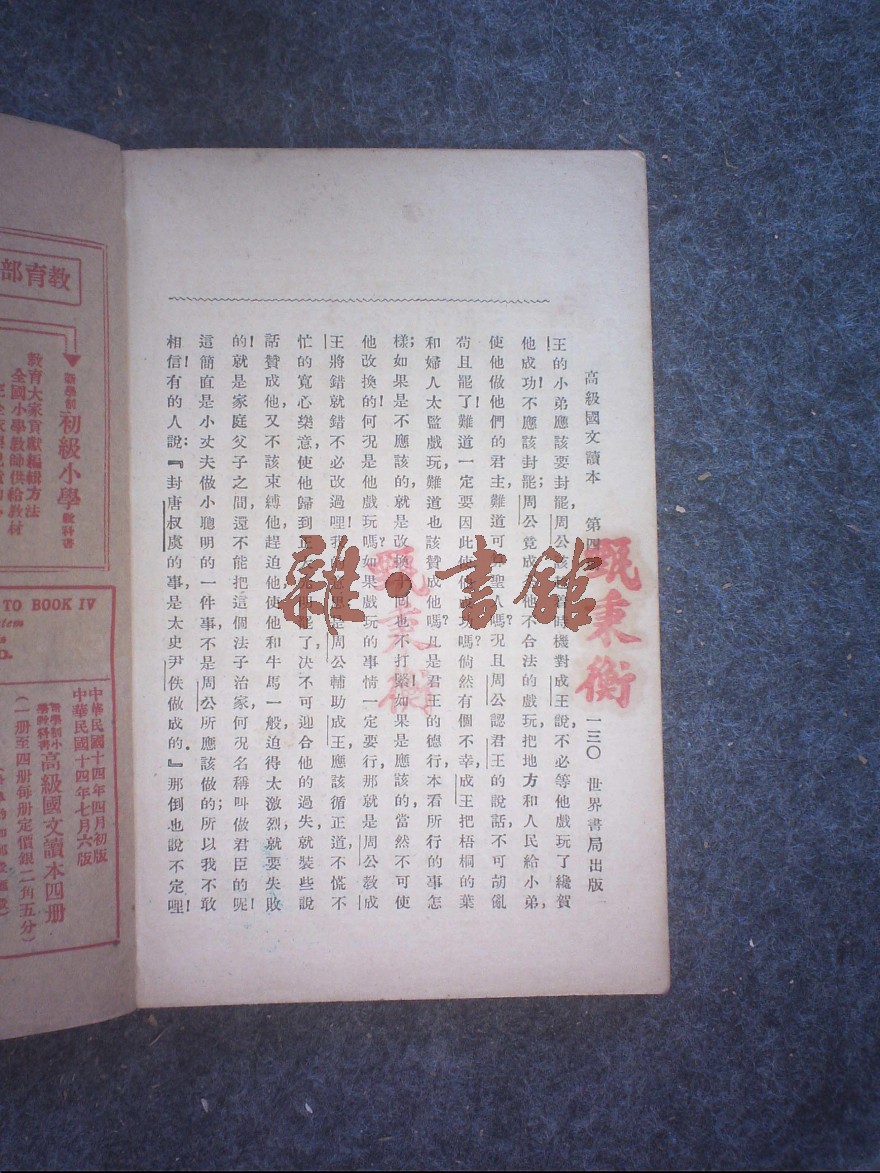 高級國文讀本 第四 一三〇 世界書局出版
王的小弟應該要封罷，周公該 時機對成王說，不必等他戲玩了纔賀
他成功！不應該封罷；周公竟成 他不合法的戲玩，把地方和人民給小弟，
使他做他們的君主，難道可 聖人嗎？況且周公認君王的說話，不可胡亂
苟且罷了！難道一定要因此使他 功嗎？倘然有個不幸，成王把梧桐的葉
和婦人太監戲玩，難道也該贊成他嗎？凡是君王的德行，本看所行的事怎
樣；如果是不應該的，就是改換 也不打緊！如果是應該的，當然不可使
他改換的！何況是他戲玩嗎？如果戲玩的事情一定要行，那就是周公教成
王將錯就錯不必改過哩！我 是周公輔助成王，應該循正道，不慌不
忙的寬心樂意，使他歸到正 罷了，决不可迎合他的過失，就裝些說
話贊成他，又不該束縛他，趕迫他，使他和牛馬一般，迫得太激烈，就要失敗
的！就是家庭父子之間，還不能把這個法子治家，何況名稱叫做君臣的呢！
這簡直是小丈夫做小聰明的一件事，不是周公所應該做的；所以我不敢
相信！有的人說：『封唐叔虞的事，是太史尹佚做成的。』那倒也說不定哩！
甄秉衡
甄秉衡
雜·書館
教育部
新學制 初級小學 教科書
教育大家貢獻編輯方法
全國小學教師供給教材
TO BOOK IV
中華民國十四年四月初版
中華民國十四年七月六版
新學制小學教科書 高級國文讀本四册
（一册至四册每册定價銀二角五分）